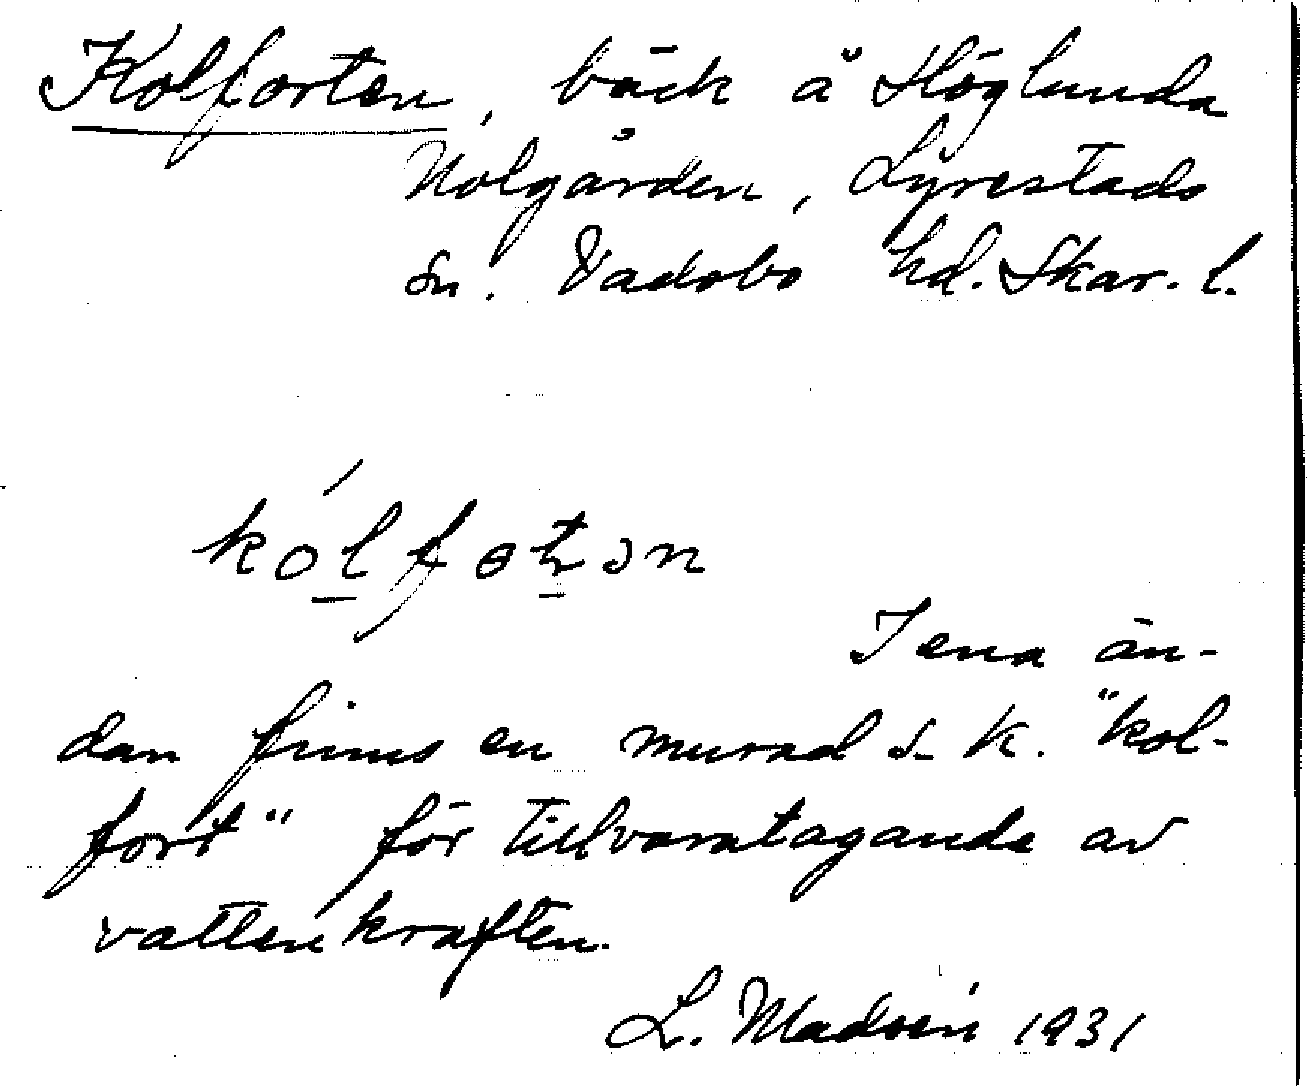 Kolforten, bäck å Höglunda
Nolgården, Lyrestads
sn. Vadsbo hd. Skar. l.
kólfotən
I ena än-
dan finns en murad s. k. "kol-
fort" för tillvaratagande av
vattenkraften.
L. Madsén 1931